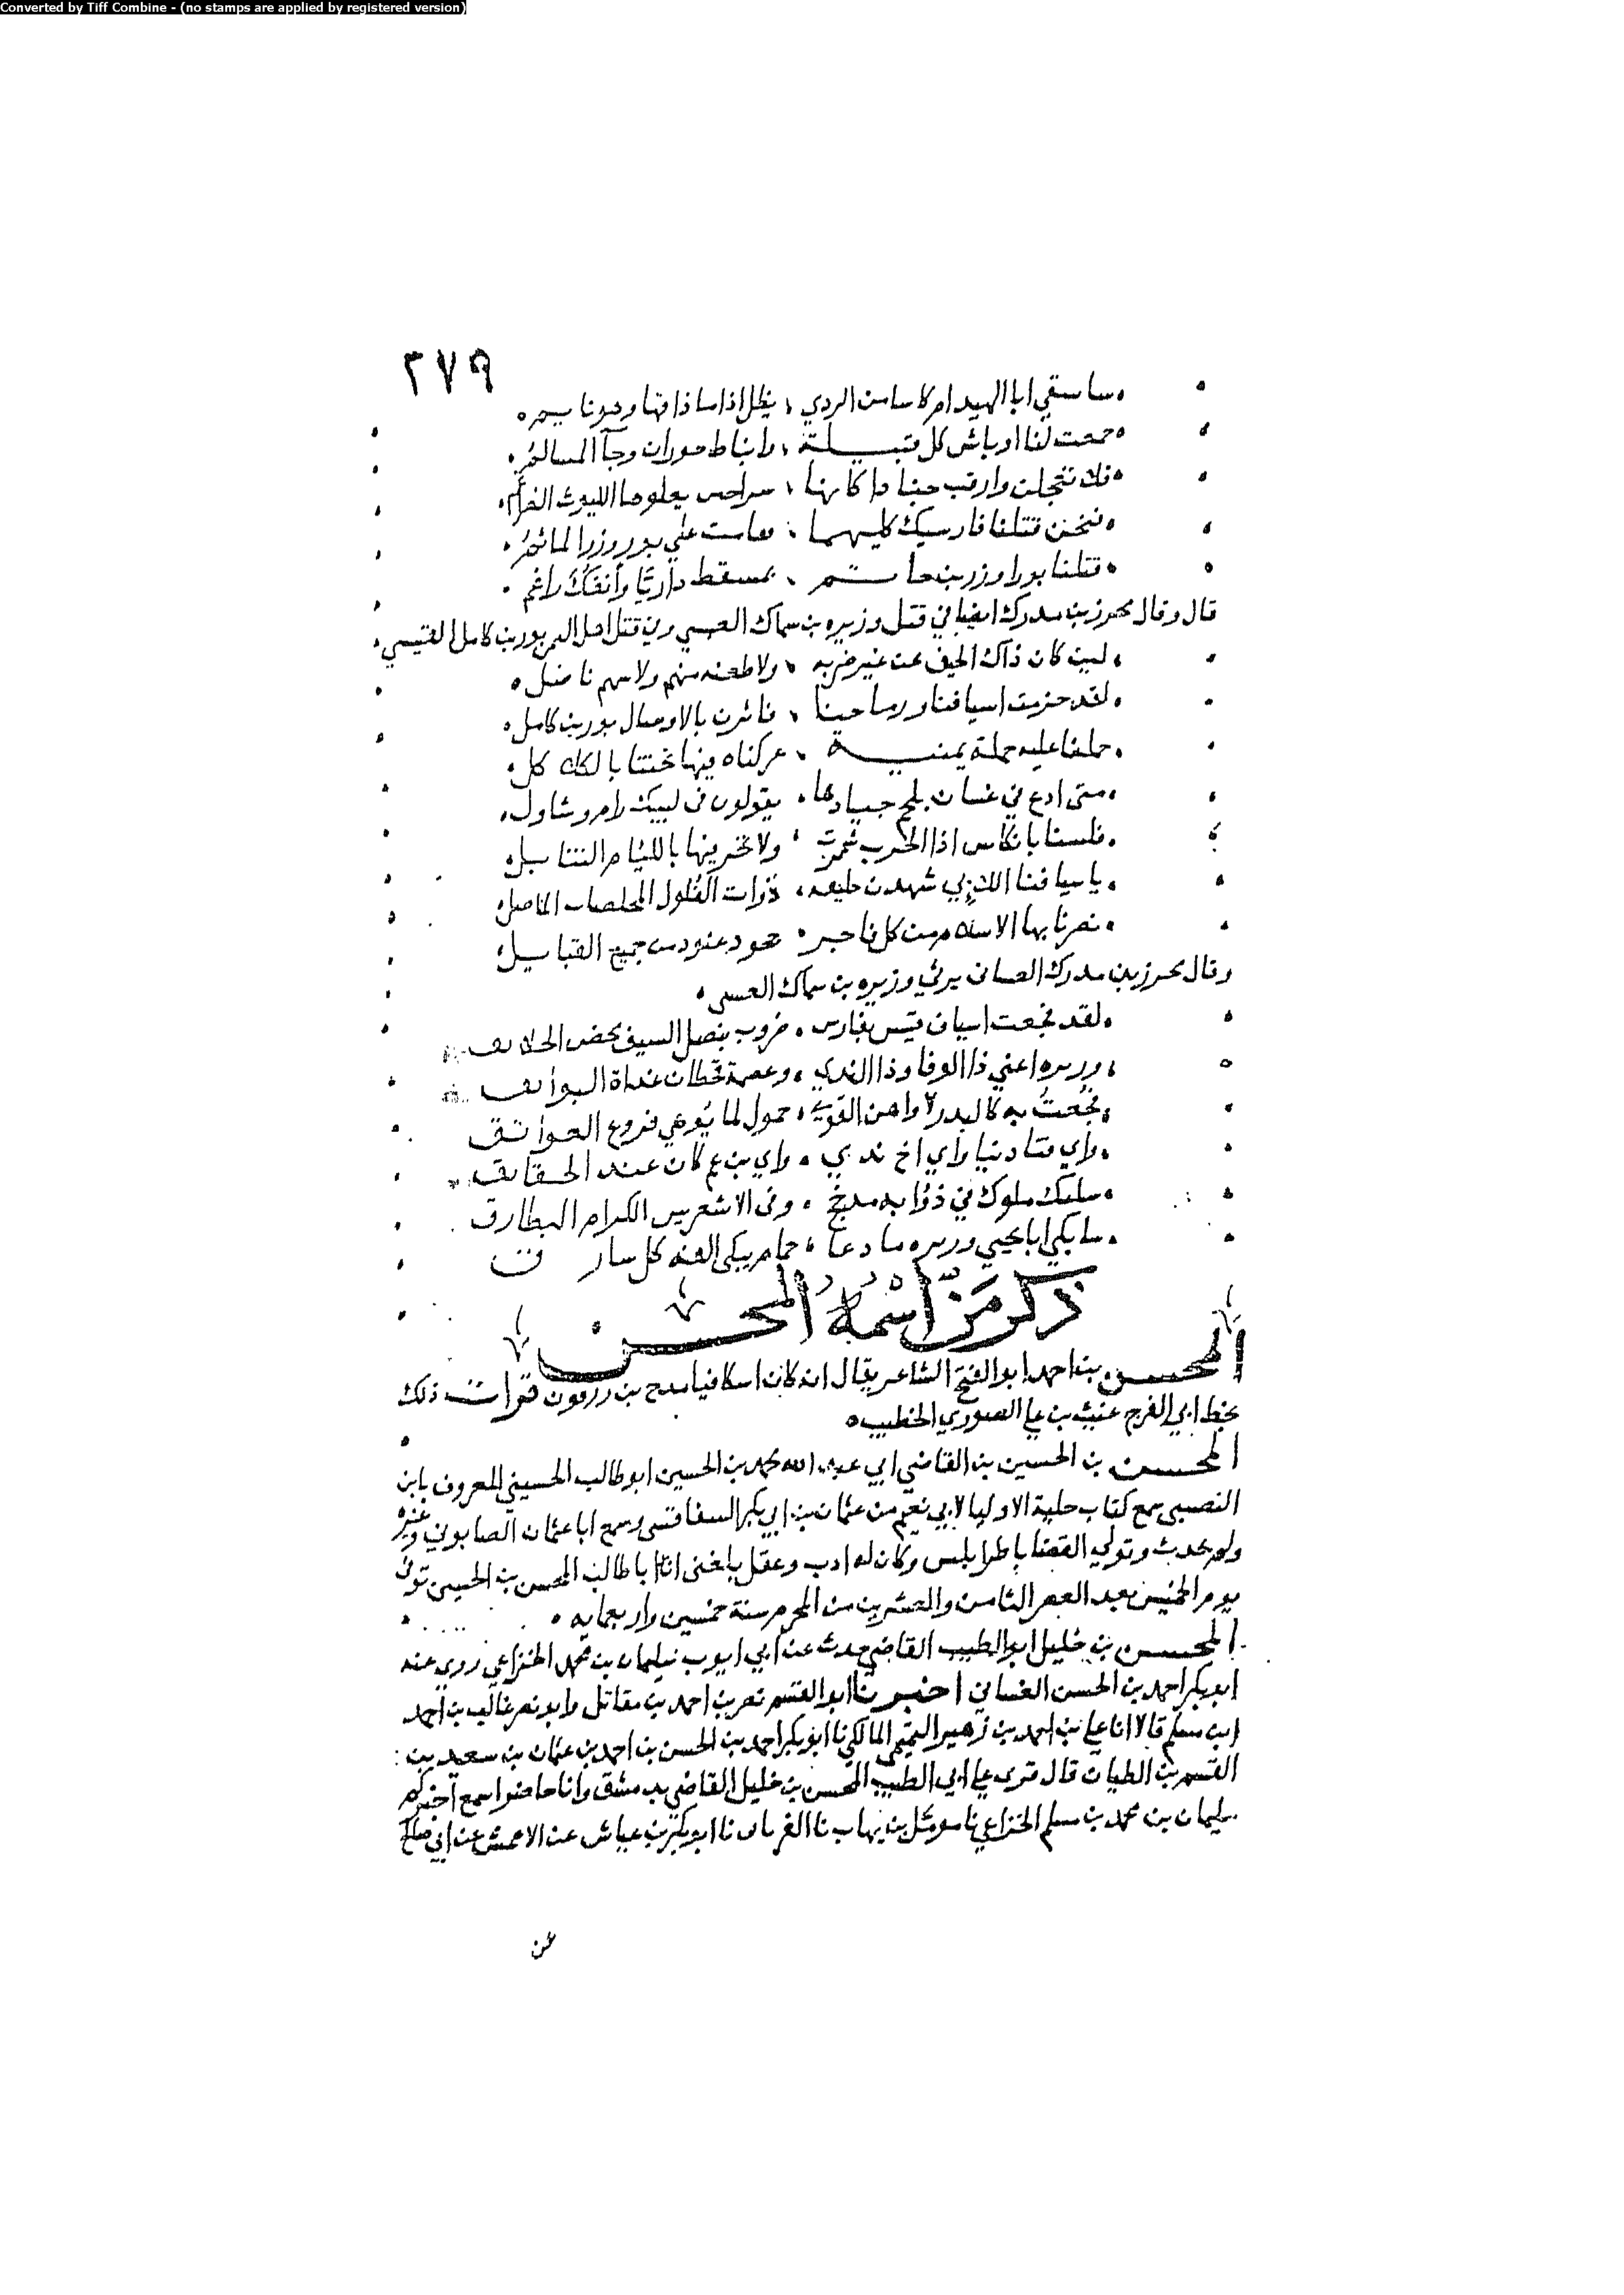 Converted by Tiff Combine - (no stamps are applied by registered version)
٢٧٩
ساسقي ابا الهيدام كاسا من الردي يظل اذا ما ذاقها وهو نايم
جمعت لنا اوباش كل قبيلة وانباط حوران وجآ المسالم
فلا تعجلن وارقب حينا يعلوها الليوث
فنحن قتلنا فارسيك كليهما علي بور وزر
قتلنا بورا وزر بن حاتم بمسقط داريّا وأنفك راغم
قال وقال محرز بن مدرك ايضا في قتل وزيره بن سماك العبسي وفي قتل اهل اليمن بور بن كامل القيسي
لين كان ذاك الحيف عن غير ضربه ولا طعنه منهم ولا سهم ناضل
لقد حزيت اسيافنا ورماحنا فاثرن بالاوصال بور بن كامل
حملنا عليه حملة يمنيه عركناه فيها بالكلاكل
متى ادع في غسان يلجم جيادها يقولون لبيك رام وشاول
فلسنا بانكاس اذا الحرب شمرت ولا نحن فيها باللئام التنابل
باسيافنا شهدن حليمه ذوات الفلول المخلصات
نصرنا بها الاسلام من كل فاجر جحود عنود من جميع القبايل
وقال محرز بن مدرك الغساني يرثي وزيره بن سماك العبسي
لقد فجعت اسياف قيس بفارس ضروب بنصل السيف محض الخلايق
وزيره اعني ذا الوفا وذا الندي وعصمة قحطان غداة البوايق
فجعت به كالبدر لا واهن القوى حمول لما يوعي فروع العواتق
واي فتا دنيا واي اخ ندي واي بن عم كان عند الحقايق
مليك ملوك في ذؤابه مذحج وفي الاشعريين الكرام البطارق
سابكي ابا يحيي وزيره ما دعا حمام يبكي الفه كل شارق
ذكر مَن اسْمُهُ المُحسن
المحسن بن احمد ابو الفتح الشاعر يقال انه كان اسكافيا مدح بن رزقون قرات ذلك
بخط ابي الفرج غيث بن علي الصوري الخطيب
المحسن بن الحسين بن القاضي ابي عبد الله محمد بن الحسين ابو طالب الحسيني المعروف بابن
النصيبي سمع كتاب حلية الاوليا لابي نعيم من عثمان بن ابي بكر السفاقسي وسمع ابا عثمان الصابوني وغيره
ولم يحدث وتولي القضا باطرابلس وكان له ادب وعقل بلغني ان ابا طالب المحسن بن الحسين توفي
يوم الخميس بعد العصر الثامن والعشرين من المحرم سنة خمسين واربعمايه
المحسن بن خليل ابو الطيب القاضي حدث عن ابي ايوب سليمان بن محمد الخزاعي روي عنه
ابو بكر احمد بن الحسن الغساني اخبرنا ابو القسم نصر بن احمد بن مقاتل وابو نصر غالب بن احمد
ابن مسلم قالا انا علي بن احمد بن زهير التميمي المالكي نا ابو بكر احمد بن الحسن بن احمد بن عثمان بن سعيد بن
القسم بن الطيان قال قري علي ابي الطيب المحسن بن خليل القاضي بدمشق وانا حاضر اسمع اخبركم
سليمان بن محمد بن مسلم الخزاعي نا مومل بن يهاب نا نا ابو بكر بن عياش عن الاعمش عن ابي صالح
عن